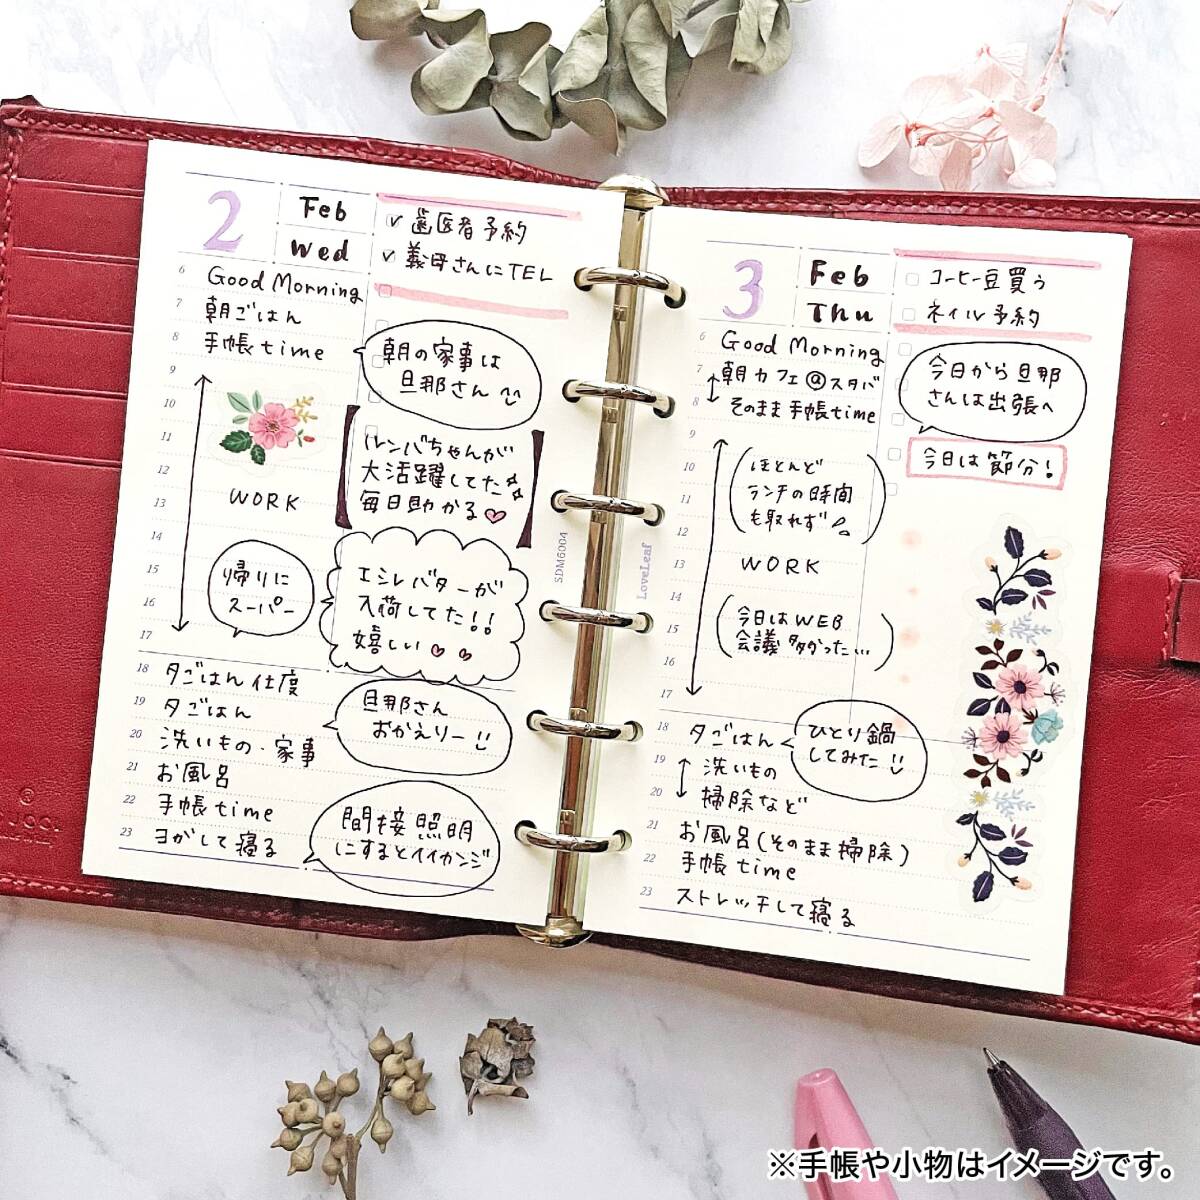 2
Feb
Wed
歯医者予約
義母さんにTEL
6
Good Morning
7
朝ごはん
8
手帳time
朝の家事は
旦那さん
9
10
11
12
13
14
15
16
17
WORK
ルンバちゃんが
大活躍してた
毎日助かる
帰りに
スーパー
エシレバターが
入荷してた!!
嬉しい
18
夕ごはん仕度
19
夕ごはん
20
洗いもの・家事
21
お風呂
22
手帳time
23
ヨガして寝る
旦那さん
おかえりー
間接照明
にするとイイカンジ
SDM6004
LoveLeaf
3
Feb
Thu
コーヒー豆買う
ネイル予約
6
Good Morning
7
朝カフェ@スタバ
8
そのまま手帳time
今日から旦那
さんは出張へ
今日は節分!
9
10
11
12
13
14
15
16
17
ほとんど
ランチの時間
も取れず
WORK
今日はWEB
会議多かった…
18
夕ごはん
19
洗いもの
20
掃除など
ひとり鍋
してみた
21
お風呂(そのまま掃除)
22
手帳time
23
ストレッチして寝る
※手帳や小物はイメージです。